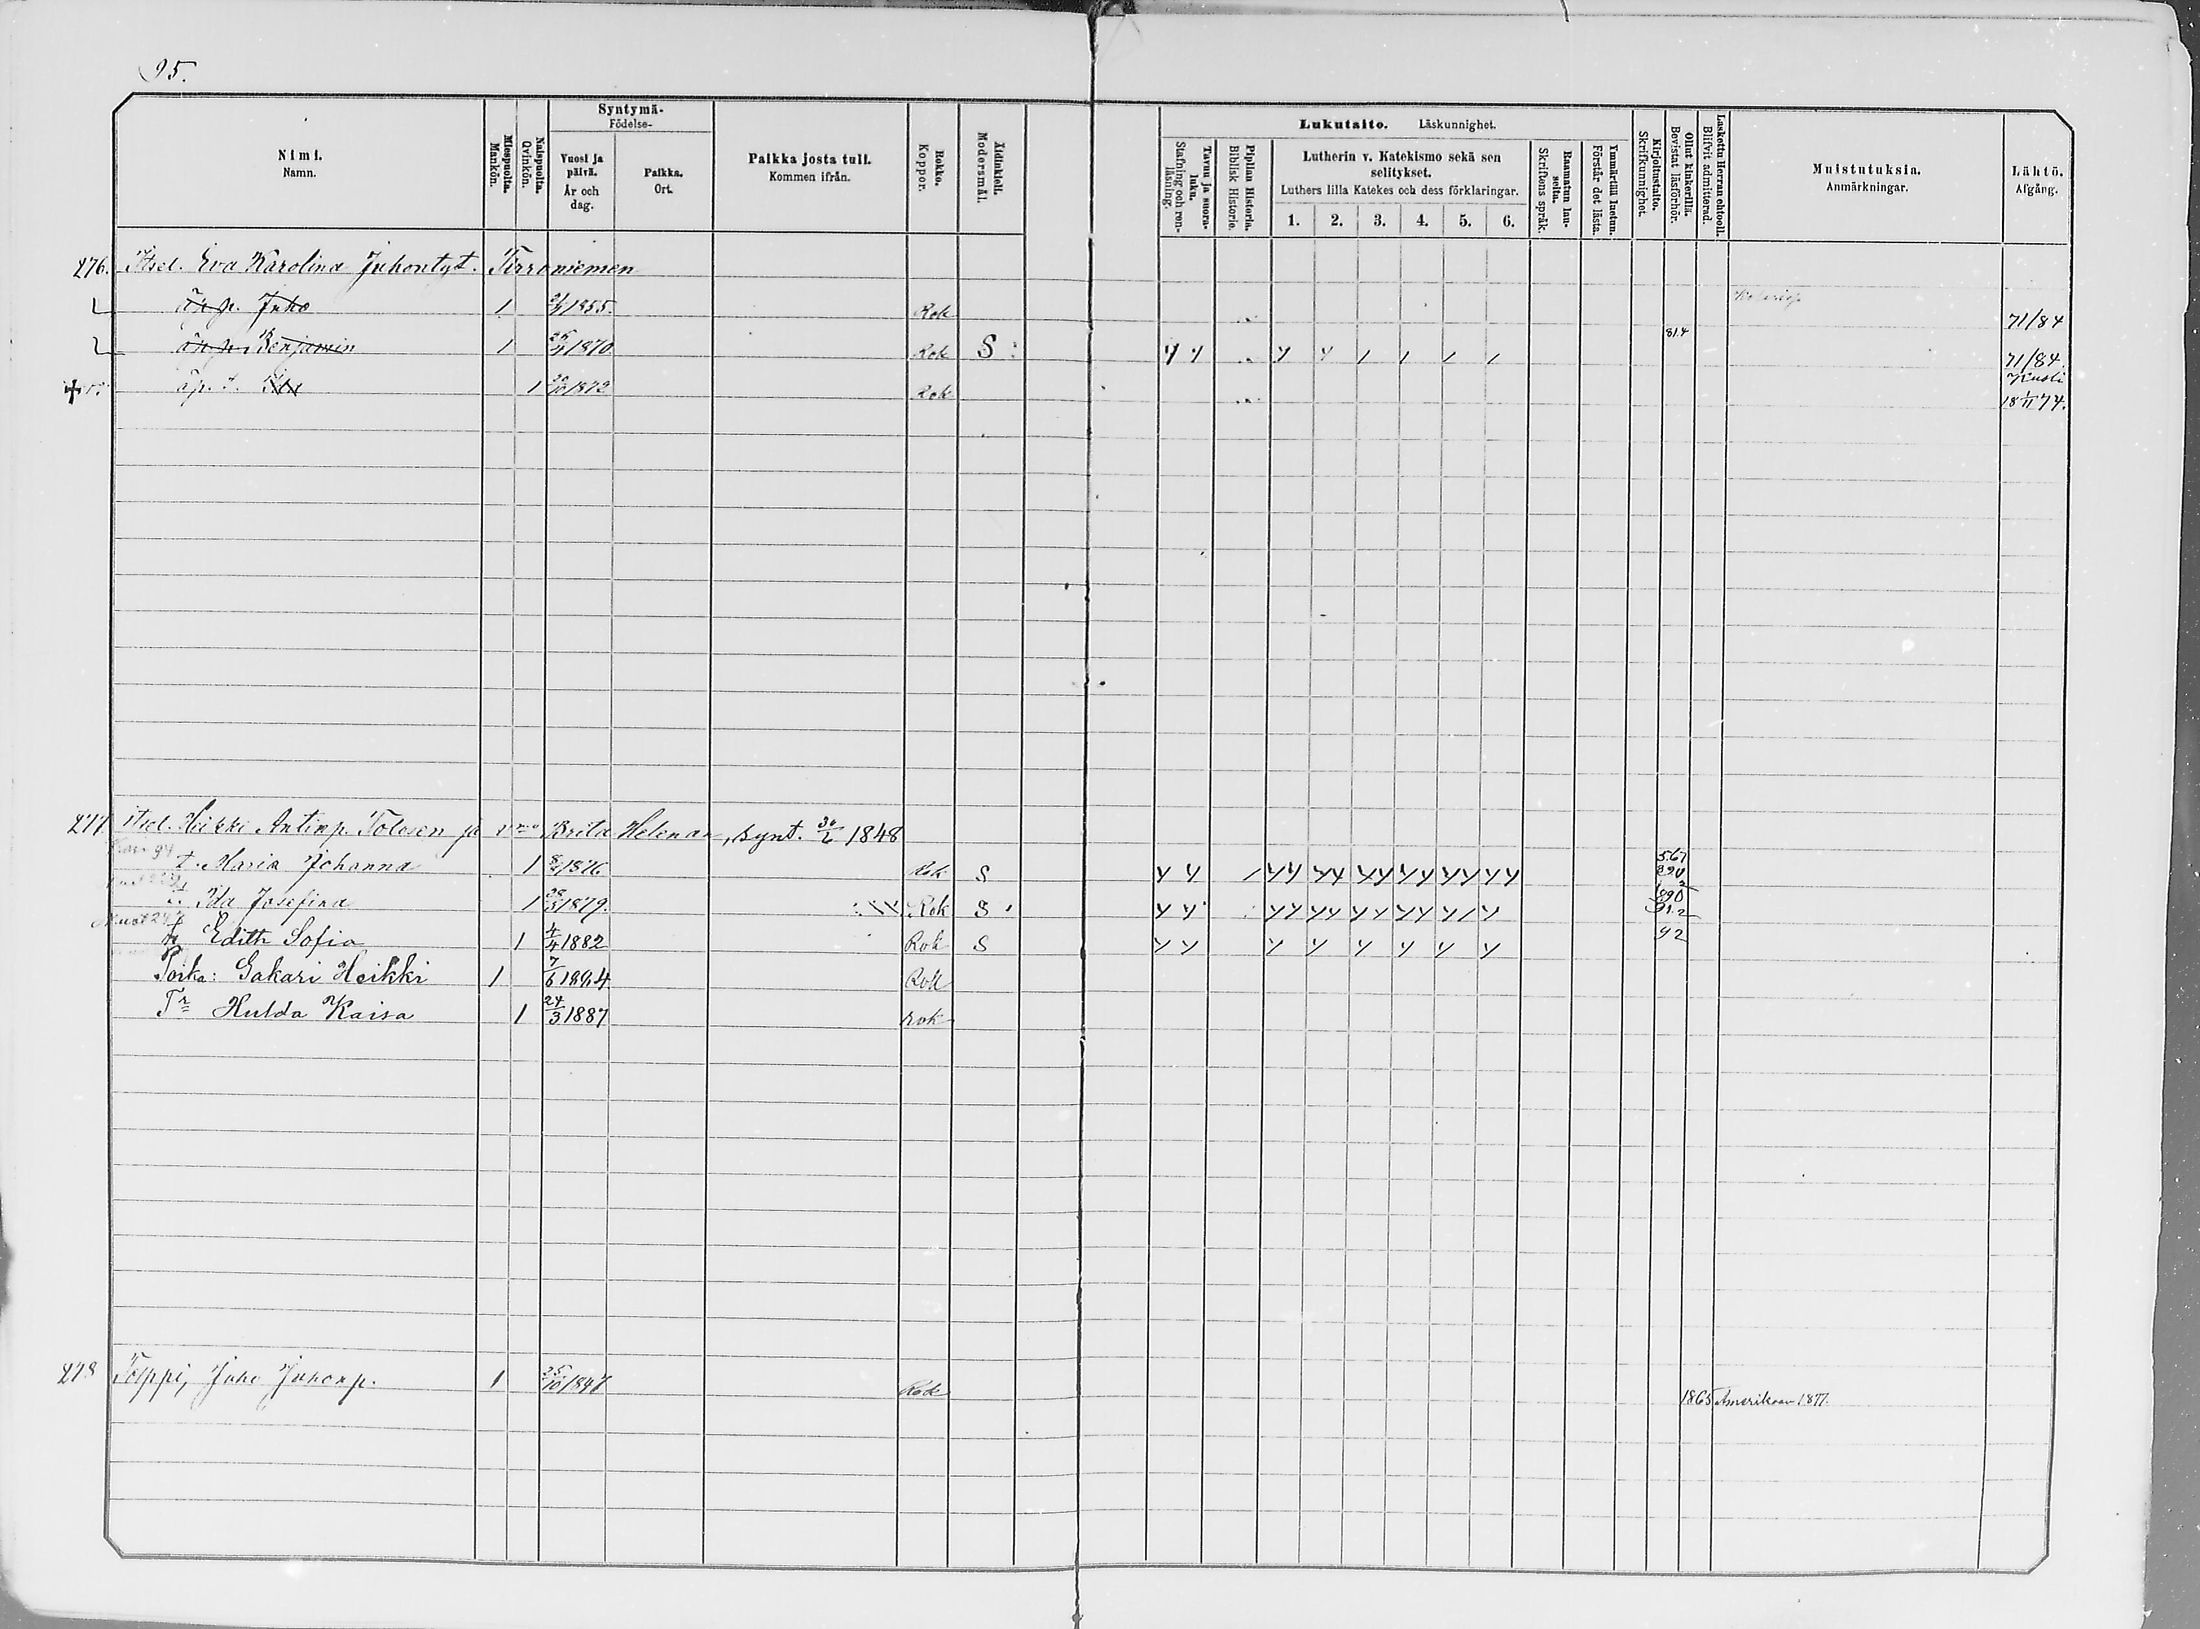 95.
Nimi. Namn.
Miespuolta. Mankön.
Naispuolta. Qvinkön.
Syntymä- Födelse-
Vuosi ja päivä. År och dag.
Paikka. Ort.
Paikka josta tuli. Kommen ifrån.
Rokko. Koppor.
Äidinkieli. Modersmål.
Lukutaito. Läskunnighet.
Tavuu ja suora-luku. Stafning och ren-läsning.
Piplian Historia. Biblisk Historie.
Lutherin v. Katekismo sekä sen selitykset.
Luthers lilla Katekes och dess förklaringar.
1. 2. 3. 4. 5. 6.
Raamatun lau-seita. Skriftens språk.
Ymmärtää luetun. Förstår det lästa.
Kirjoitustaito. Skrifkunnighet.
Ollut kinkerillä. Bevistat läsförhör.
Laskettu Herran ehtooll. Blifvit admitterad.
Muistutuksia. Anmärkningar.
Lähtö. Afgång.
276. Itsel. Eva Karolina Juhontyt. Tirroniemen
äp. p. Juho 1 1855. Rok 71/84
äp. p. Benjamin 1 25/4 1870 Rok S 814 71/84.
äp. t. 1 1872 Rok Kuoli 18 1/11 74.
277 itsel. Heikki Antinp. Tolosen ja v:mo Brita Helenan, synt. 30/6 1848
t. Maria Johanna 1 1876 Rok S 567 890
t. Ida Josefina 1 28/3 1879. Rok S 890 912
Muut 247
t. Edith Sofia 1 4/4 1882 Rok S 92
Poika: Sakari Heikki 1 7/6 1894 Rok
Tr Hulda Kaisa 1 24/3 1887 rok
278 Tolppi, Juho Juhonp. 1 25/10 1847 Rok 1865 Amerikaan 1877.